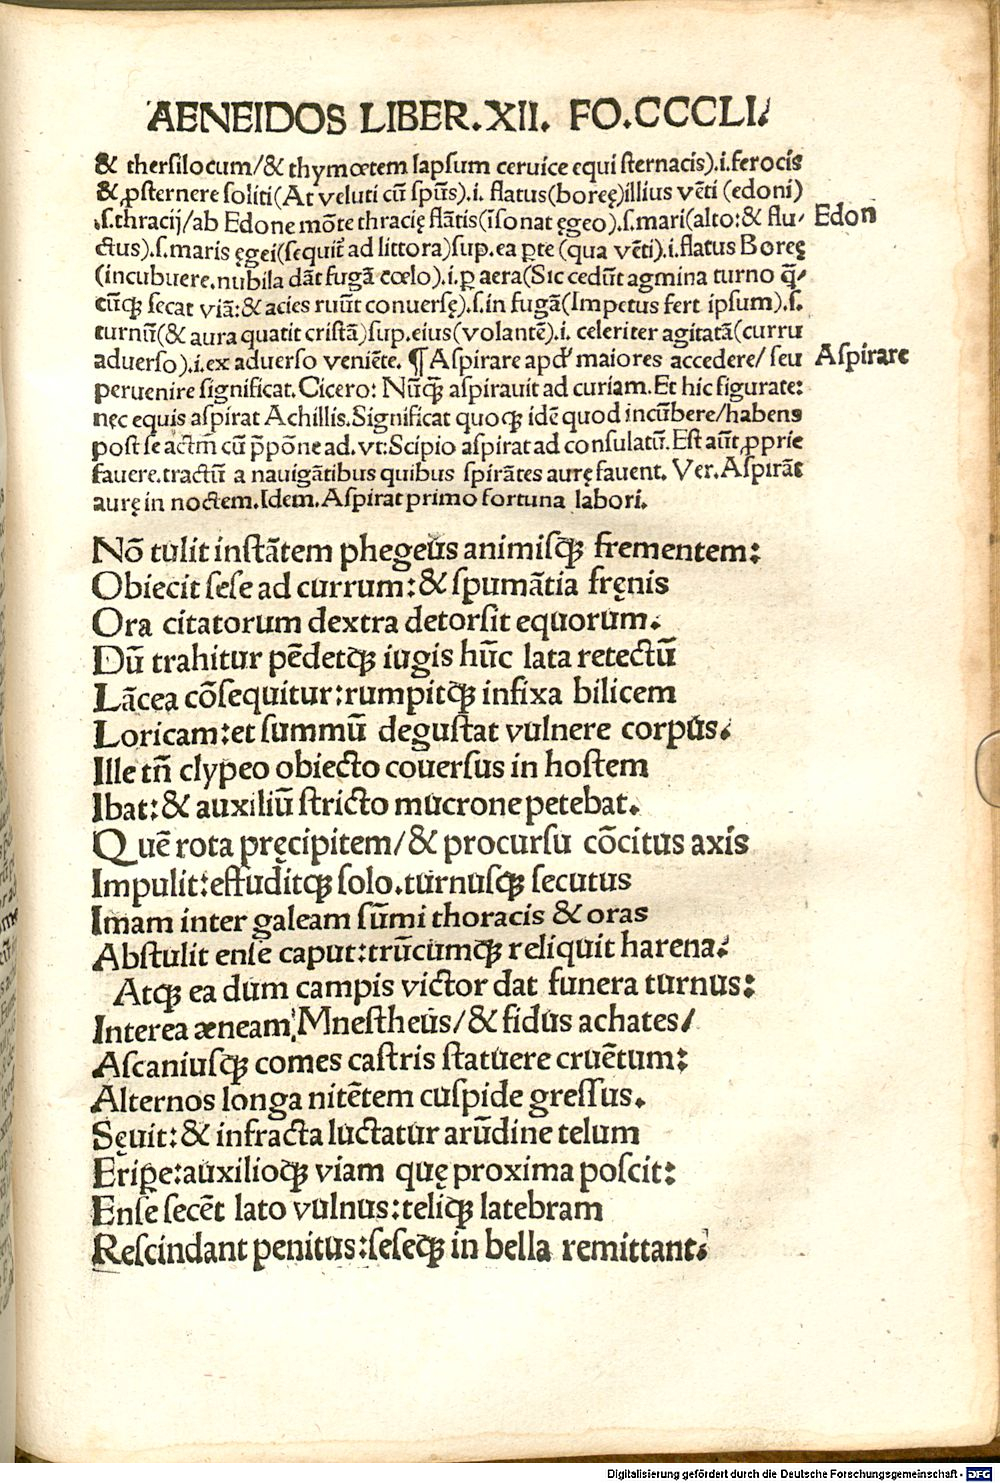 AENEIDOS LIBER.XII. FO.CCCLI.
& thersilocum/& thymœtem lapsum ceruice equi sternacis).i.ferocis
& ꝓsternere soliti(At veluti cū spūs).i. flatus(boreę)illius vēti (edoni)
.s.thracij/ab Edone mōte thracię flātis(īsonat ęgeo).s.mari(alto:& flu-
Edon
ctus).s.maris ęgei(sequit̃ ad littora)sup.ea ꝑte (qua vēti).i.flatus Boreę
(incubuere.nubila dāt fugā cœlo).i.ꝑ aera(Sic cedūt agmina turno q̄-
cūqꝫ secat viā:& acies ruūt conuersę).s.in fugā(Impetus fert ipsum).s.
turnū(& aura quatit cristā)sup.eius(volantē).i. celeriter agitatā(curru
aduerso).i.ex aduerso veniēte. ¶ Aspirare apd' maiores accedere/ seu
Aspirare
peruenire significat.Cicero: Nūqꝫ aspirauit ad curiam.Et hic figurate:
nęc equis aspirat Achillis.Significat quoqꝫ idē quod incūbere/habens
post se actm̄ cū p̄pōne ad.vt:Scipio aspirat ad consulatū.Est aūt ꝓprie
fauere.tractū a nauigātibus quibus spirātes aurę fauent. Ver.Aspirāt
aurę in noctem.Idem.Aspirat primo fortuna labori.
Nō tulit instātem phegeus animisqꝫ frementem:
Obiecit sese ad currum:& spumātia fręnis
Ora citatorum dextra detorsit equorum.
Dū trahitur pēdetqꝫ iugis hūc lata retectū
Lācea cōsequitur:rumpitqꝫ infixa bilicem
Loricam:et summū degustat vulnere corpus.
Ille tn̄ clypeo obiecto couersus in hostem
Ibat:& auxiliū stricto mucrone petebat.
Quē rota pręcipitem/& procursu cōcitus axis
Impulit:effuditqꝫ solo.turnusqꝫ secutus
Imam inter galeam sūmi thoracis & oras
Abstulit ense caput:trūcumqꝫ reliquit harena.
Atqꝫ ea dum campis victor dat funera turnus:
Interea æneam Mnestheus/& fidus achates/
Ascaniusqꝫ comes castris statuere cruētum:
Alternos longa nitētem cuspide gressus.
Sęuit:& infracta luctatur arūdine telum
Eriꝑe:auxilioqꝫ viam quę proxima poscit:
Ense secēt lato vulnus:teliqꝫ latebram
Rescindant penitus:seseqꝫ in bella remittant.
Digitalisierung gefördert durch die Deutsche Forschungsgemeinschaft - DFG